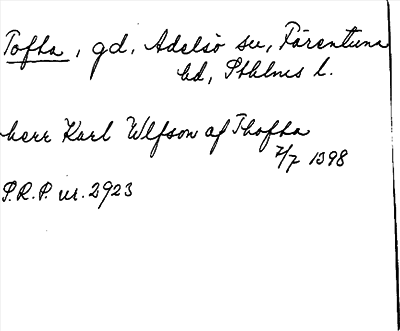 Tofta, gd, Adelsö sn, Färentuna
hd, Sthlms l.
herr Karl Ulfson af Thoftha
7/7 1398
S.R.P. nr. 2923